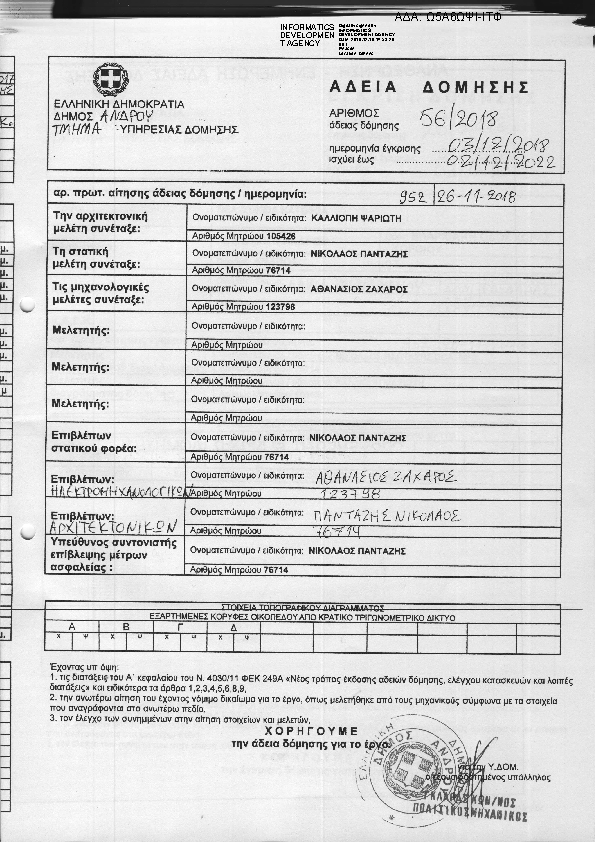 ΑΔΑ: Ω5Α6ΩΨΙ-ΙΤΦ
INFORMATICS
DEVELOPMEN
T AGENCY
ΕΛΛΗΝΙΚΗ ΔΗΜΟΚΡΑΤΙΑ
ΔΗΜΟΣ ΑΝΔΡΟΥ
ΤΜΗΜΑ ΥΠΗΡΕΣΙΑΣ ΔΟΜΗΣΗΣ
ΑΔΕΙΑ ΔΟΜΗΣΗΣ
ΑΡΙΘΜΟΣ
άδειας δόμησης 56/2018
ημερομηνία έγκρισης ......03/12/2018
ισχύει έως ..................02/12/2022
αρ. πρωτ. αίτησης άδειας δόμησης / ημερομηνία: 952/26-11-2018
Την αρχιτεκτονική
μελέτη συνέταξε:
Ονοματεπώνυμο / ειδικότητα: ΚΑΛΛΙΟΠΗ ΨΑΡΙΩΤΗ
Αριθμός Μητρώου 105426
Τη στατική
μελέτη συνέταξε:
Ονοματεπώνυμο / ειδικότητα: ΝΙΚΟΛΑΟΣ ΠΑΝΤΑΖΗΣ
Αριθμός Μητρώου 76714
Τις μηχανολογικές
μελέτες συνέταξε:
Ονοματεπώνυμο / ειδικότητα: ΑΘΑΝΑΣΙΟΣ ΖΑΧΑΡΟΣ
Αριθμός Μητρώου 123798
Μελετητής:
Ονοματεπώνυμο / ειδικότητα:
Αριθμός Μητρώου
Μελετητής:
Ονοματεπώνυμο / ειδικότητα:
Αριθμός Μητρώου
Μελετητής:
Ονοματεπώνυμο / ειδικότητα:
Αριθμός Μητρώου
Επιβλέπων
στατικού φορέα:
Ονοματεπώνυμο / ειδικότητα: ΝΙΚΟΛΑΟΣ ΠΑΝΤΑΖΗΣ
Αριθμός Μητρώου 76714
Επιβλέπων:
ΗΛΕΚΤΡΟΜΗΧΑΝΟΛΟΓΙΚΩΝ
Ονοματεπώνυμο / ειδικότητα: ΑΘΑΝΑΣΙΟΣ ΖΑΧΑΡΟΣ
Αριθμός Μητρώου 123798
Επιβλέπων:
ΑΡΧΙΤΕΚΤΟΝΙΚΩΝ
Ονοματεπώνυμο / ειδικότητα: ΠΑΝΤΑΖΗΣ ΝΙΚΟΛΑΟΣ
Αριθμός Μητρώου 76714
Υπεύθυνος συντονιστής
επίβλεψης μέτρων
ασφαλείας :
Ονοματεπώνυμο / ειδικότητα: ΝΙΚΟΛΑΟΣ ΠΑΝΤΑΖΗΣ
Αριθμός Μητρώου 76714
ΣΤΟΙΧΕΙΑ ΤΟΠΟΓΡΑΦΙΚΟΥ ΔΙΑΓΡΑΜΜΑΤΟΣ
ΕΞΑΡΤΗΜΕΝΕΣ ΚΟΡΥΦΕΣ ΟΙΚΟΠΕΔΟΥ ΑΠΟ ΚΡΑΤΙΚΟ ΤΡΙΓΩΝΟΜΕΤΡΙΚΟ ΔΙΚΤΥΟ
Α Β Γ Δ
Χ Ψ Χ Ψ Χ Ψ Χ Ψ
Έχοντας υπ όψη:
1. τις διατάξεις του Α΄ κεφαλαίου του Ν. 4030/11 ΦΕΚ 249Α «Νέος τρόπος έκδοσης αδειών δόμησης, ελέγχου κατασκευών και λοιπές
διατάξεις» και ειδικότερα τα άρθρα 1,2,3,4,5,6,8,9,
2. την ανωτέρω αίτηση του έχοντος νόμιμο δικαίωμα για το έργο, όπως μελετήθηκε από τους μηχανικούς σύμφωνα με τα στοιχεία
που αναγράφονται στο ανωτέρω πεδίο.
3. τον έλεγχο των συνημμένων στην αίτηση στοιχείων και μελετών,
ΧΟΡΗΓΟΥΜΕ
την άδεια δόμησης για το έργο:
για την Υ.ΔΟΜ.
ο εξουσιοδοτημένος υπάλληλος
ΚΩΝ/ΝΟΣ
ΠΟΛΙΤΙΚΟΣ ΜΗΧΑΝΙΚΟΣ